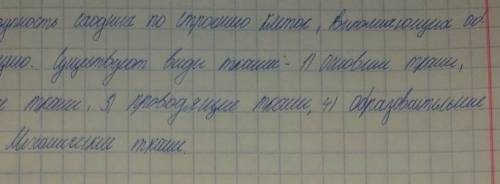 сходных по строению клеток, выполняющих об
цию. Существуют виды тканей - 1) Основные ткани,
е ткани, 3) проводящие ткани, 4) образовательные
Механические ткани.